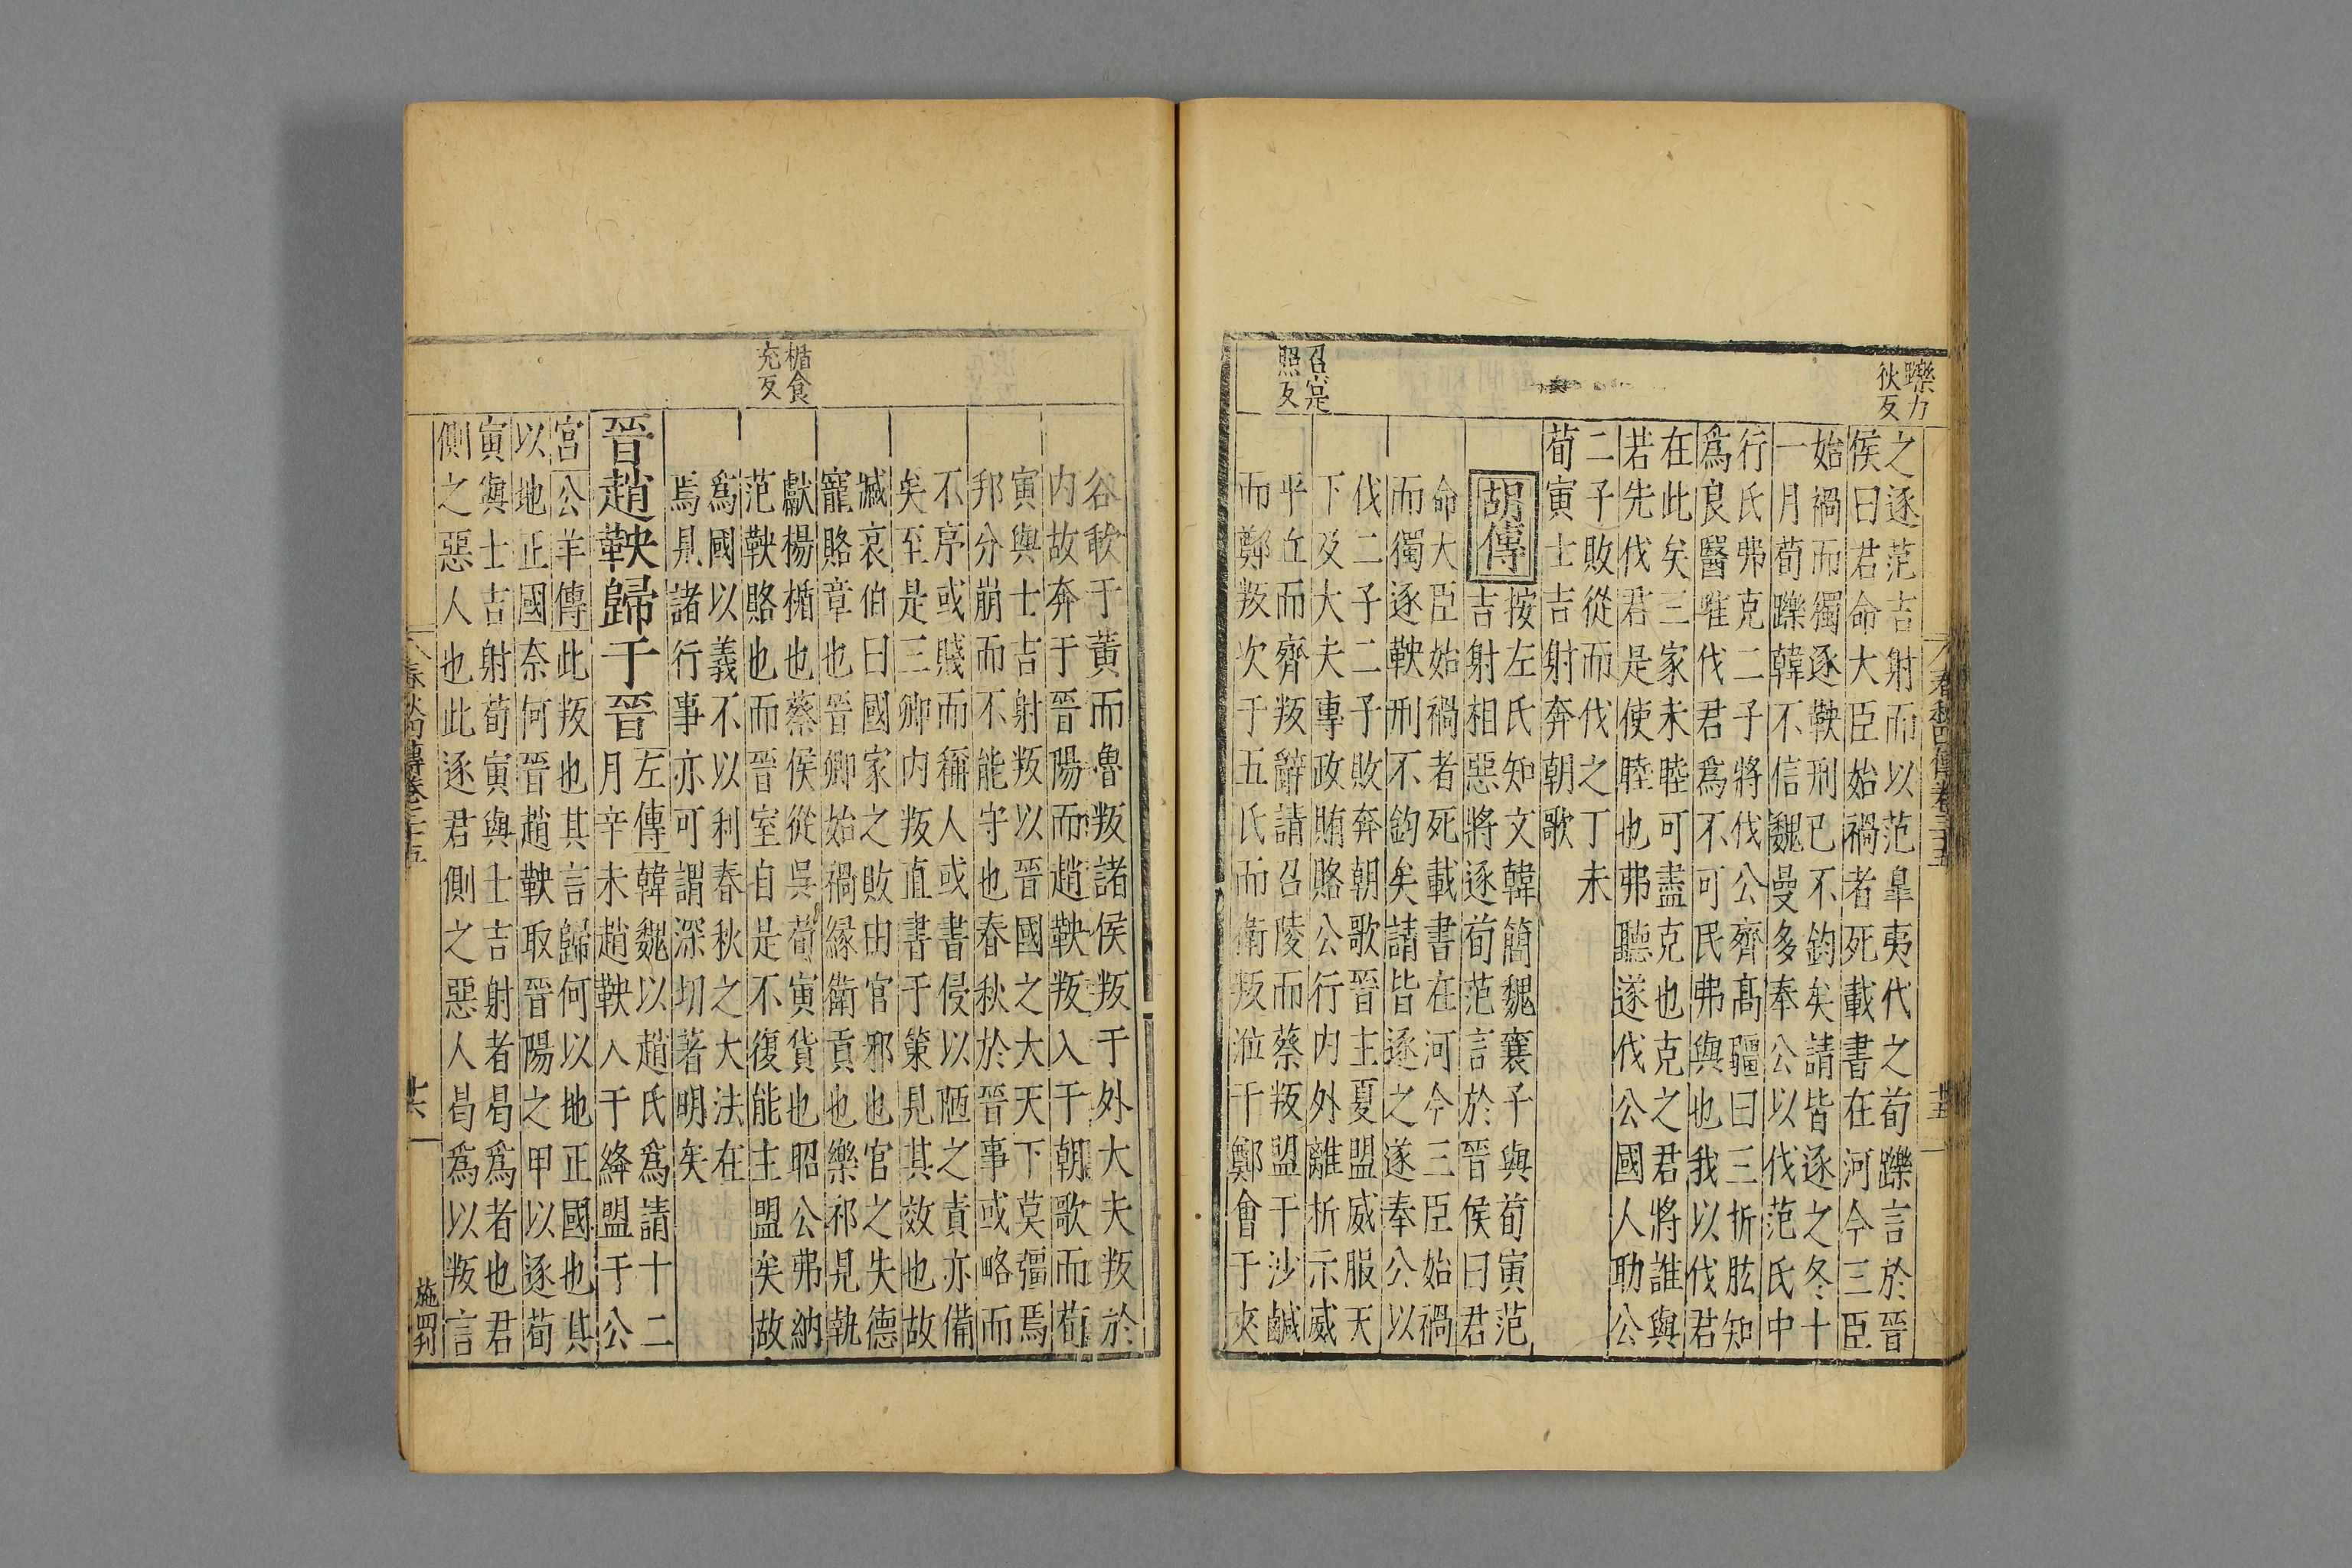 躒力
狄反
之逐范吉射而以范皐夷代之荀躒言於晉
侯曰君命大臣始禍者死載書在河今三臣
始禍而獨逐鞅刑已不鈞矣請皆逐之冬十
一月荀躒韓不信魏曼多奉公以伐范氏中
行氏弗克二子將伐公齊髙彊曰三折肱知
爲良醫唯伐君爲不可民弗與也我以伐君
在此矣三家未睦可盡克也克之君將誰與
若先伐君是使睦也弗聽遂伐公國人助公
二子敗從而伐之丁未
荀寅士吉射奔朝歌
胡傳
按左氏知文韓簡魏襄子與荀寅范
吉射相惡將逐荀范言於晉侯曰君
命大臣始禍者死載書在河今三臣始禍
而獨逐鞅刑不鈞矣請皆逐之遂奉公以
伐二子二子敗奔朝歌晉主夏盟威服天
下及大夫專政賄賂公行内外離析示威
平丘而齊叛辭請召陵而蔡叛盟于沙鹹
而鄭叛次于五氏而衛叛涖于鄭會于夾
召寔
照反
春秋四傳卷三十五
十五
谷歃于黃而魯叛諸侯叛于外大夫叛於
内故奔于晉陽而趙鞅叛入于朝歌而荀
寅與士吉射叛以晉國之大天下莫彊焉
邦分崩而不能守也春秋於晉事或略而
不序或賤而稱人或書侵以陋之責亦備
矣至是三卿内叛直書于策見其效也故
臧哀伯曰國家之敗由官邪也官之失德
寵賂章也晉卿始禍緣衛貢也樂祁見執
獻楊楯也蔡侯從吳荀寅貨也昭公弗納
范鞅賂也而晉室自是不復能主盟矣故
爲國以義不以利春秋之大法在
焉見諸行事亦可謂深切著明矣
楯食
充反
晉趙鞅歸于晉
左傳韓魏以趙氏爲請十二
月辛未趙鞅入于絳盟于公
宮公羊傳此叛也其言歸何以地正國也其
以地正國奈何晉趙鞅取晉陽之甲以逐荀
寅與士吉射荀寅與士吉射者曷爲者也君
側之惡人也此逐君側之惡人曷爲以叛言
春秋四傳卷三十五
十六
施四刋